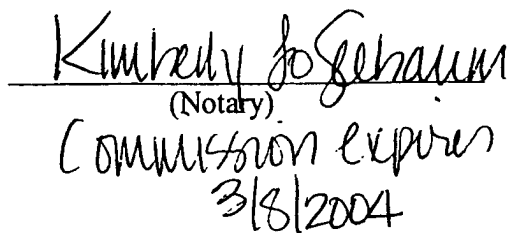 Kimberly Jo
(Notary)
Commission expires
3/8/2004